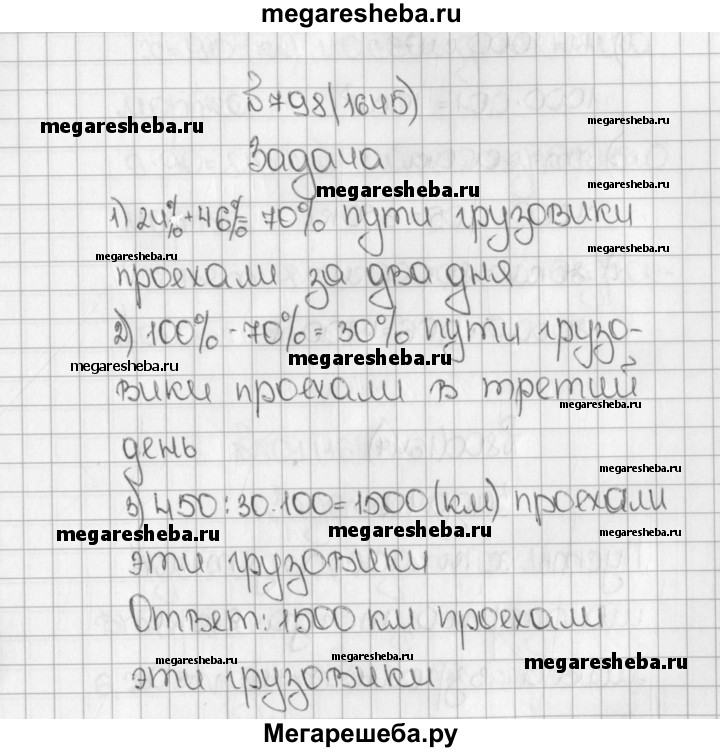 megaresheba.ru
№798(1645)
megaresheba.ru
megaresheba.ru
Задача
megaresheba.ru
1) 24%+46%=70% пути грузовики
megaresheba.ru
megaresheba.ru
проехали за два дня
2) 100%-70%=30% пути грузо-
megaresheba.ru
megaresheba.ru
вики проехали в третий
megaresheba.ru
день
megaresheba.ru
3) 450:30·100=1500(км) проехали
megaresheba.ru
megaresheba.ru
megaresheba.ru
эти грузовики
Ответ: 1500 км проехали
megaresheba.ru
megaresheba.ru
megaresheba.ru
эти грузовики
Мегарешеба.ру